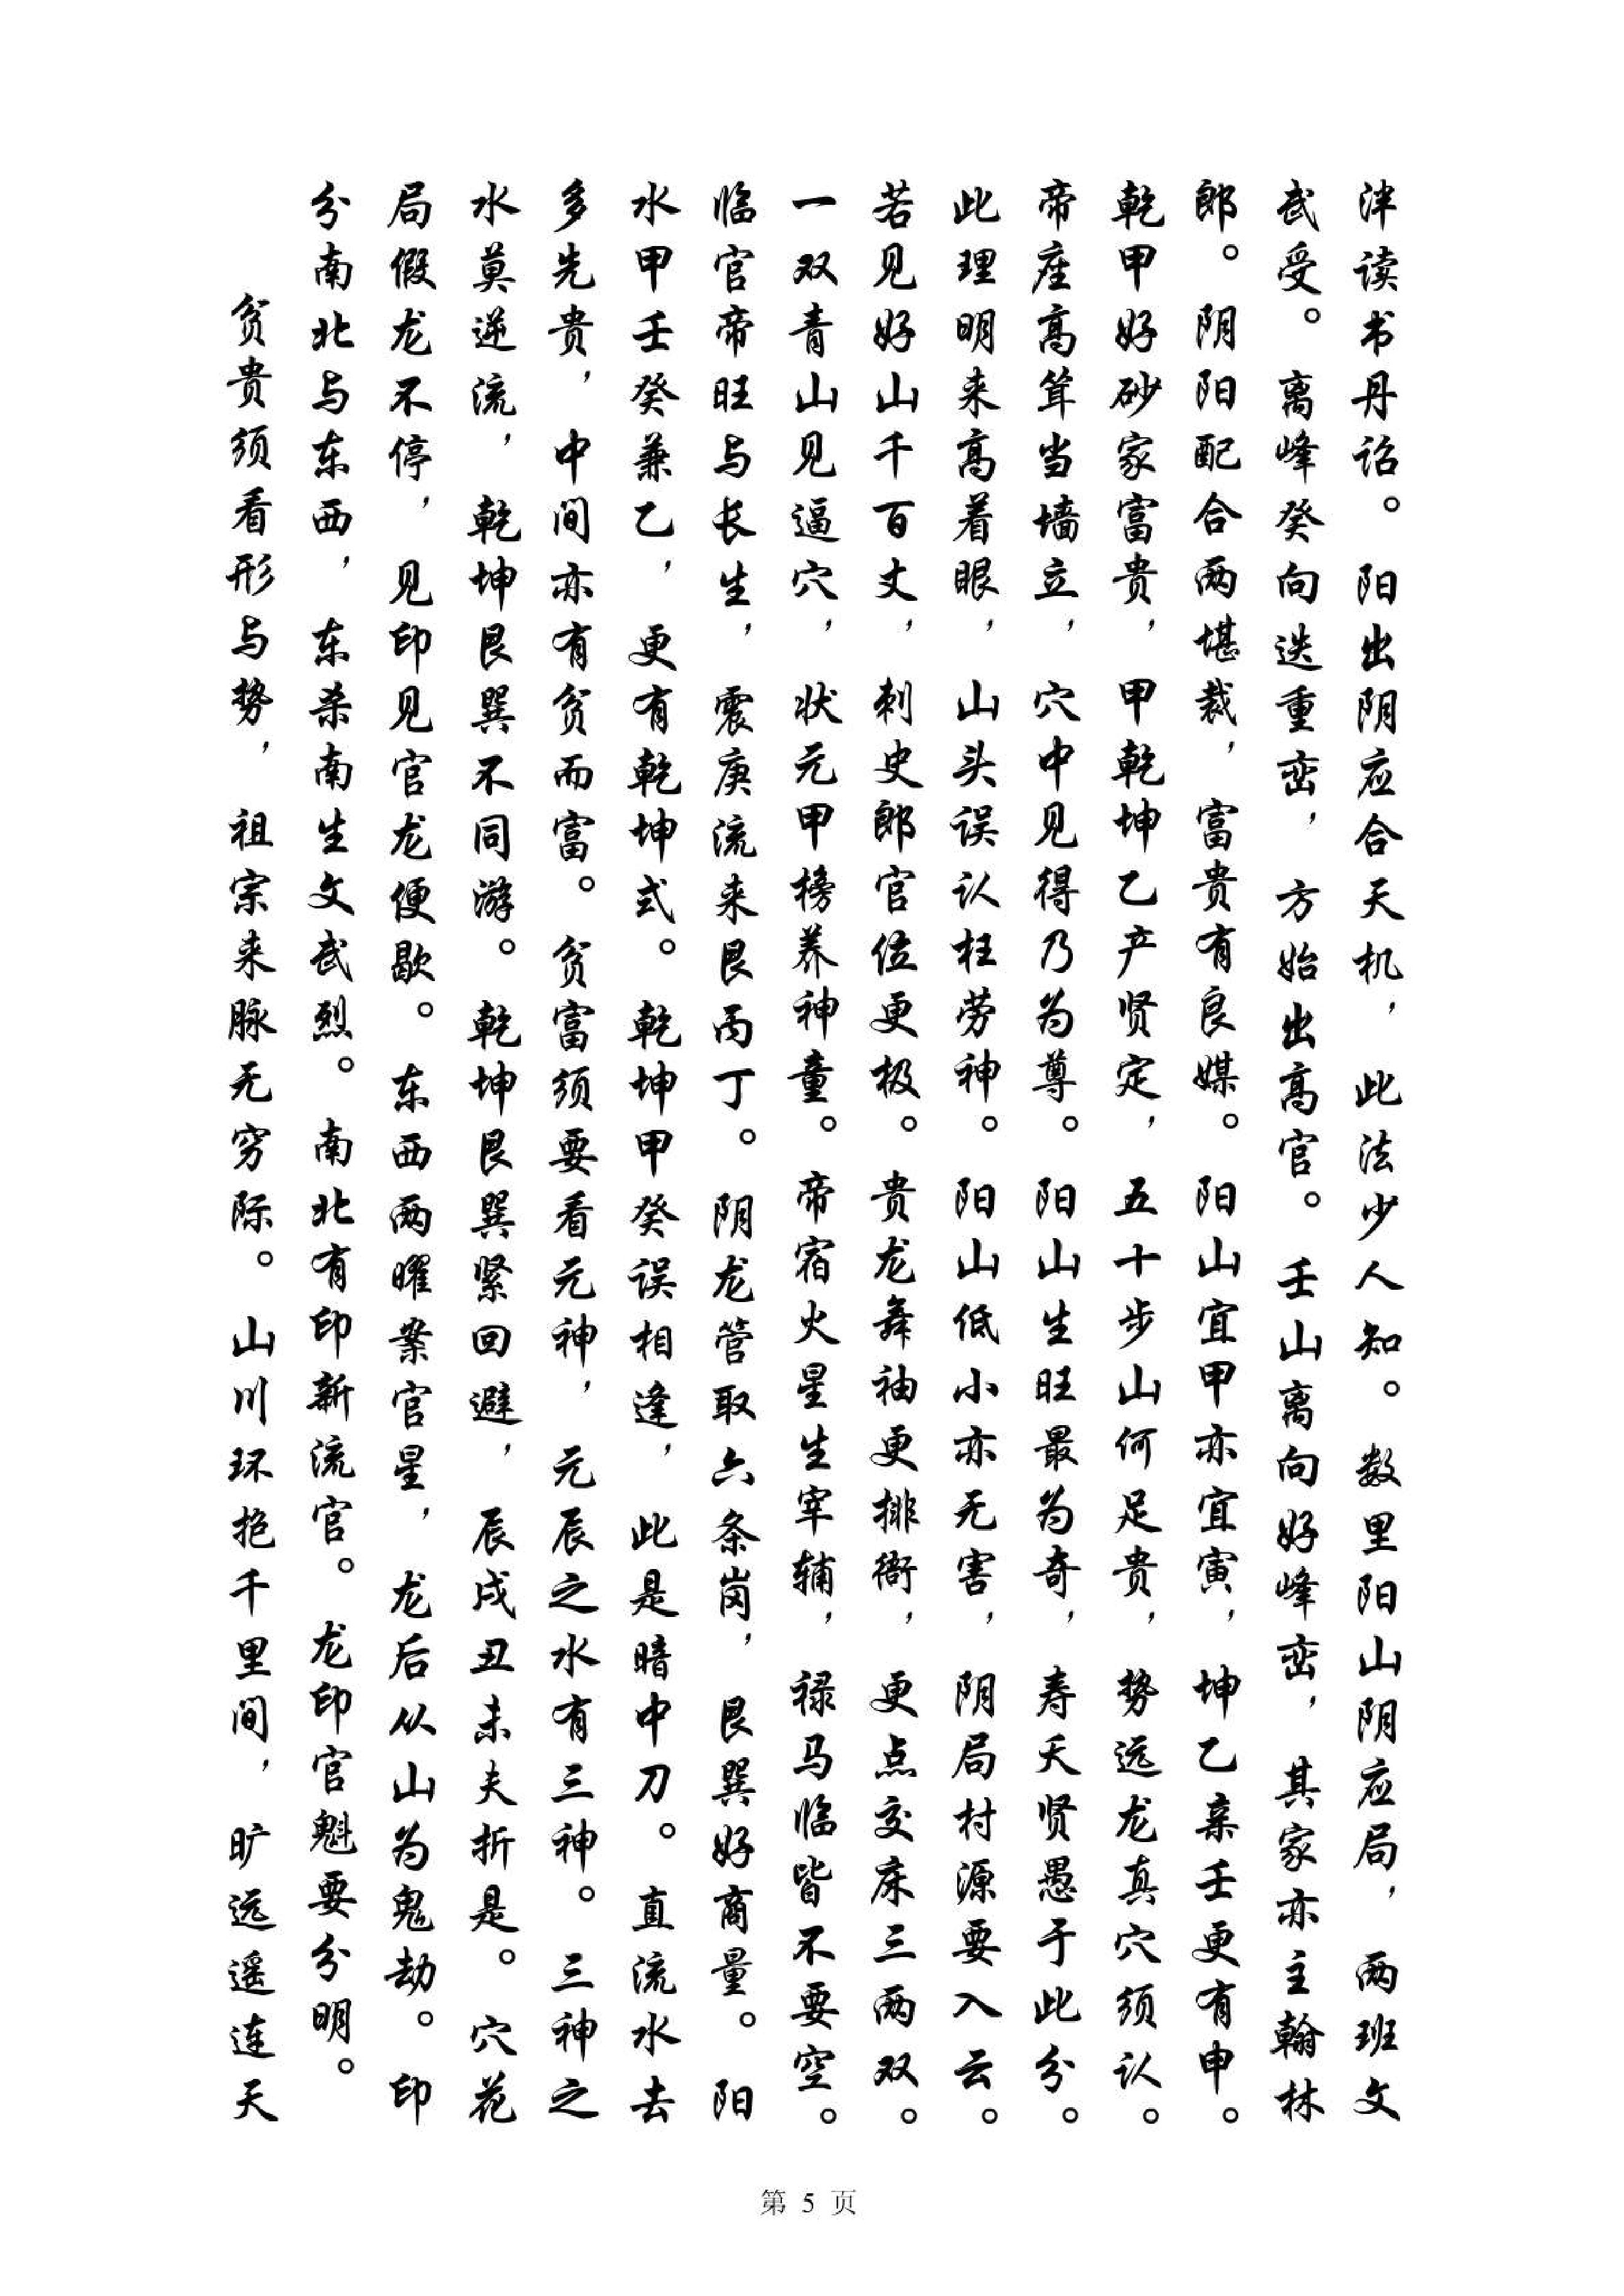 泮读书丹诏。阳出阴应合天机，此法少人知。数里阳山阴应局，两班文
武受。离峰癸向迭重峦，方始出高官。壬山离向好峰峦，其家亦主翰林
郎。阴阳配合两堪裁，富贵有良媒。阳山宜甲亦宜寅，坤乙亲壬更有申。
乾甲好砂家富贵，甲乾坤乙产贤定，五十步山何足贵，势远龙真穴须认。
帝座高耸当墙立，穴中见得乃为尊。阳山生旺最为奇，寿夭贤愚于此分。
此理明来高着眼，山头误认枉劳神。阳山低小亦无害，阴局村源要入云。
若见好山千百丈，刺史郎官位更极。贵龙舞袖更排衙，更点交床三两双。
一双青山见逼穴，状元甲榜养神童。帝宿火星生宰辅，禄马临皆不要空。
临官帝旺与长生，震庚流来艮丙丁。阴龙管取六条岗，艮巽好商量。阳
水甲壬癸兼乙，更有乾坤式。乾坤甲癸误相逢，此是暗中刀。直流水去
多先贵，中间亦有贫而富。贫富须要看元神，元辰之水有三神。三神之
水莫逆流，乾坤艮巽不同游。乾坤艮巽紧回避，辰戌丑未夫折是。穴花
局假龙不停，见印见官龙便歇。东西两曜案官星，龙后从山为鬼劫。印
分南北与东西，东杀南生文武烈。南北有印新流官。龙印官魁要分明。
贫贵须看形与势，祖宗来脉无穷际。山川环抱千里间，旷远遥连天
第 5 页